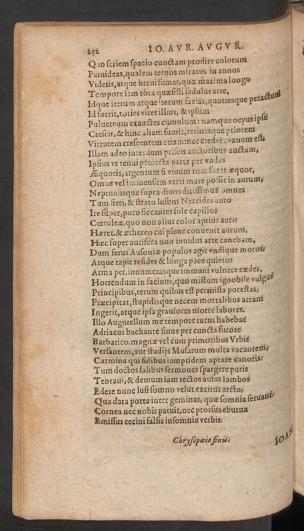 252 IO. AVR. AVGVR.
Quo seriem spacio cunctam prodire colorum
Peruideas, qualem ternos miratus in annos
Videris, atque breui sumas, quæ maxima longo
Tempore iam tota quæsisti sedulus arte,
Idque iterum atque iterum facias, quotiesque peractum
Id fuerit, toties vires illius, & ipsum
Puluereum exauctes cumulum: namque ocyus ipse
Crescit, & hinc alium sumit, retinetque priorem
Virtutem crescentem etiam nec creder: vanum est,
Illam adeo interdum priscis auctoribus auctam,
Ipsius vt tenui proiecta parte per vndas
Æquoris, argentum si viuum tum foret æquor,
Omne vel immensum verti mare posset in aurum,
Neptunusque supra diuos ditissimus omnes
Tum fieri, & strato lusum Nereides auro
Ire super, puro siccantes sole capillos
Cœruleæ, quo non alius color aptius auro
Hæret, & æthereo cui plene conuenit aurum.
Hæc super aurifera non inuidus arte canebam,
Dum ferus Ausoniæ populos agit vndique motus
Atque rapit resides & longa pace quietos
Arma per, innumerasque immani vulnere cædes,
Horrendum in facinus, quo mistum ignobile vulgus
Principibus, rerum quibus est permissa potestas,
Præcipitat, stupidisque necem mortalibus atram
Ingerit, atque ipsa grauiores morte labores.
Illo Augurellum me tempore tutus habebat
Adriacus bachante sinus per cuncta furore
Barbarico, magnæ vel cum primoribus Vrbis
Versantem, aut studijs Musarum multa vacantem,
Carmina qui fidibus iampridem aptare canoris,
Tum doctos salibus sermones spargere puris
Tentaui, & demum iam tectos ausus iambos
Edere nunc lusi somno velut excitus arcto,
Qua data porta inter geminas, quæ somnia seruant,
Cornea nec nobis patuit, nec prorsus eburna
Emissus cecini falsis insomnia verbis.
Chrysopœiæ finis.